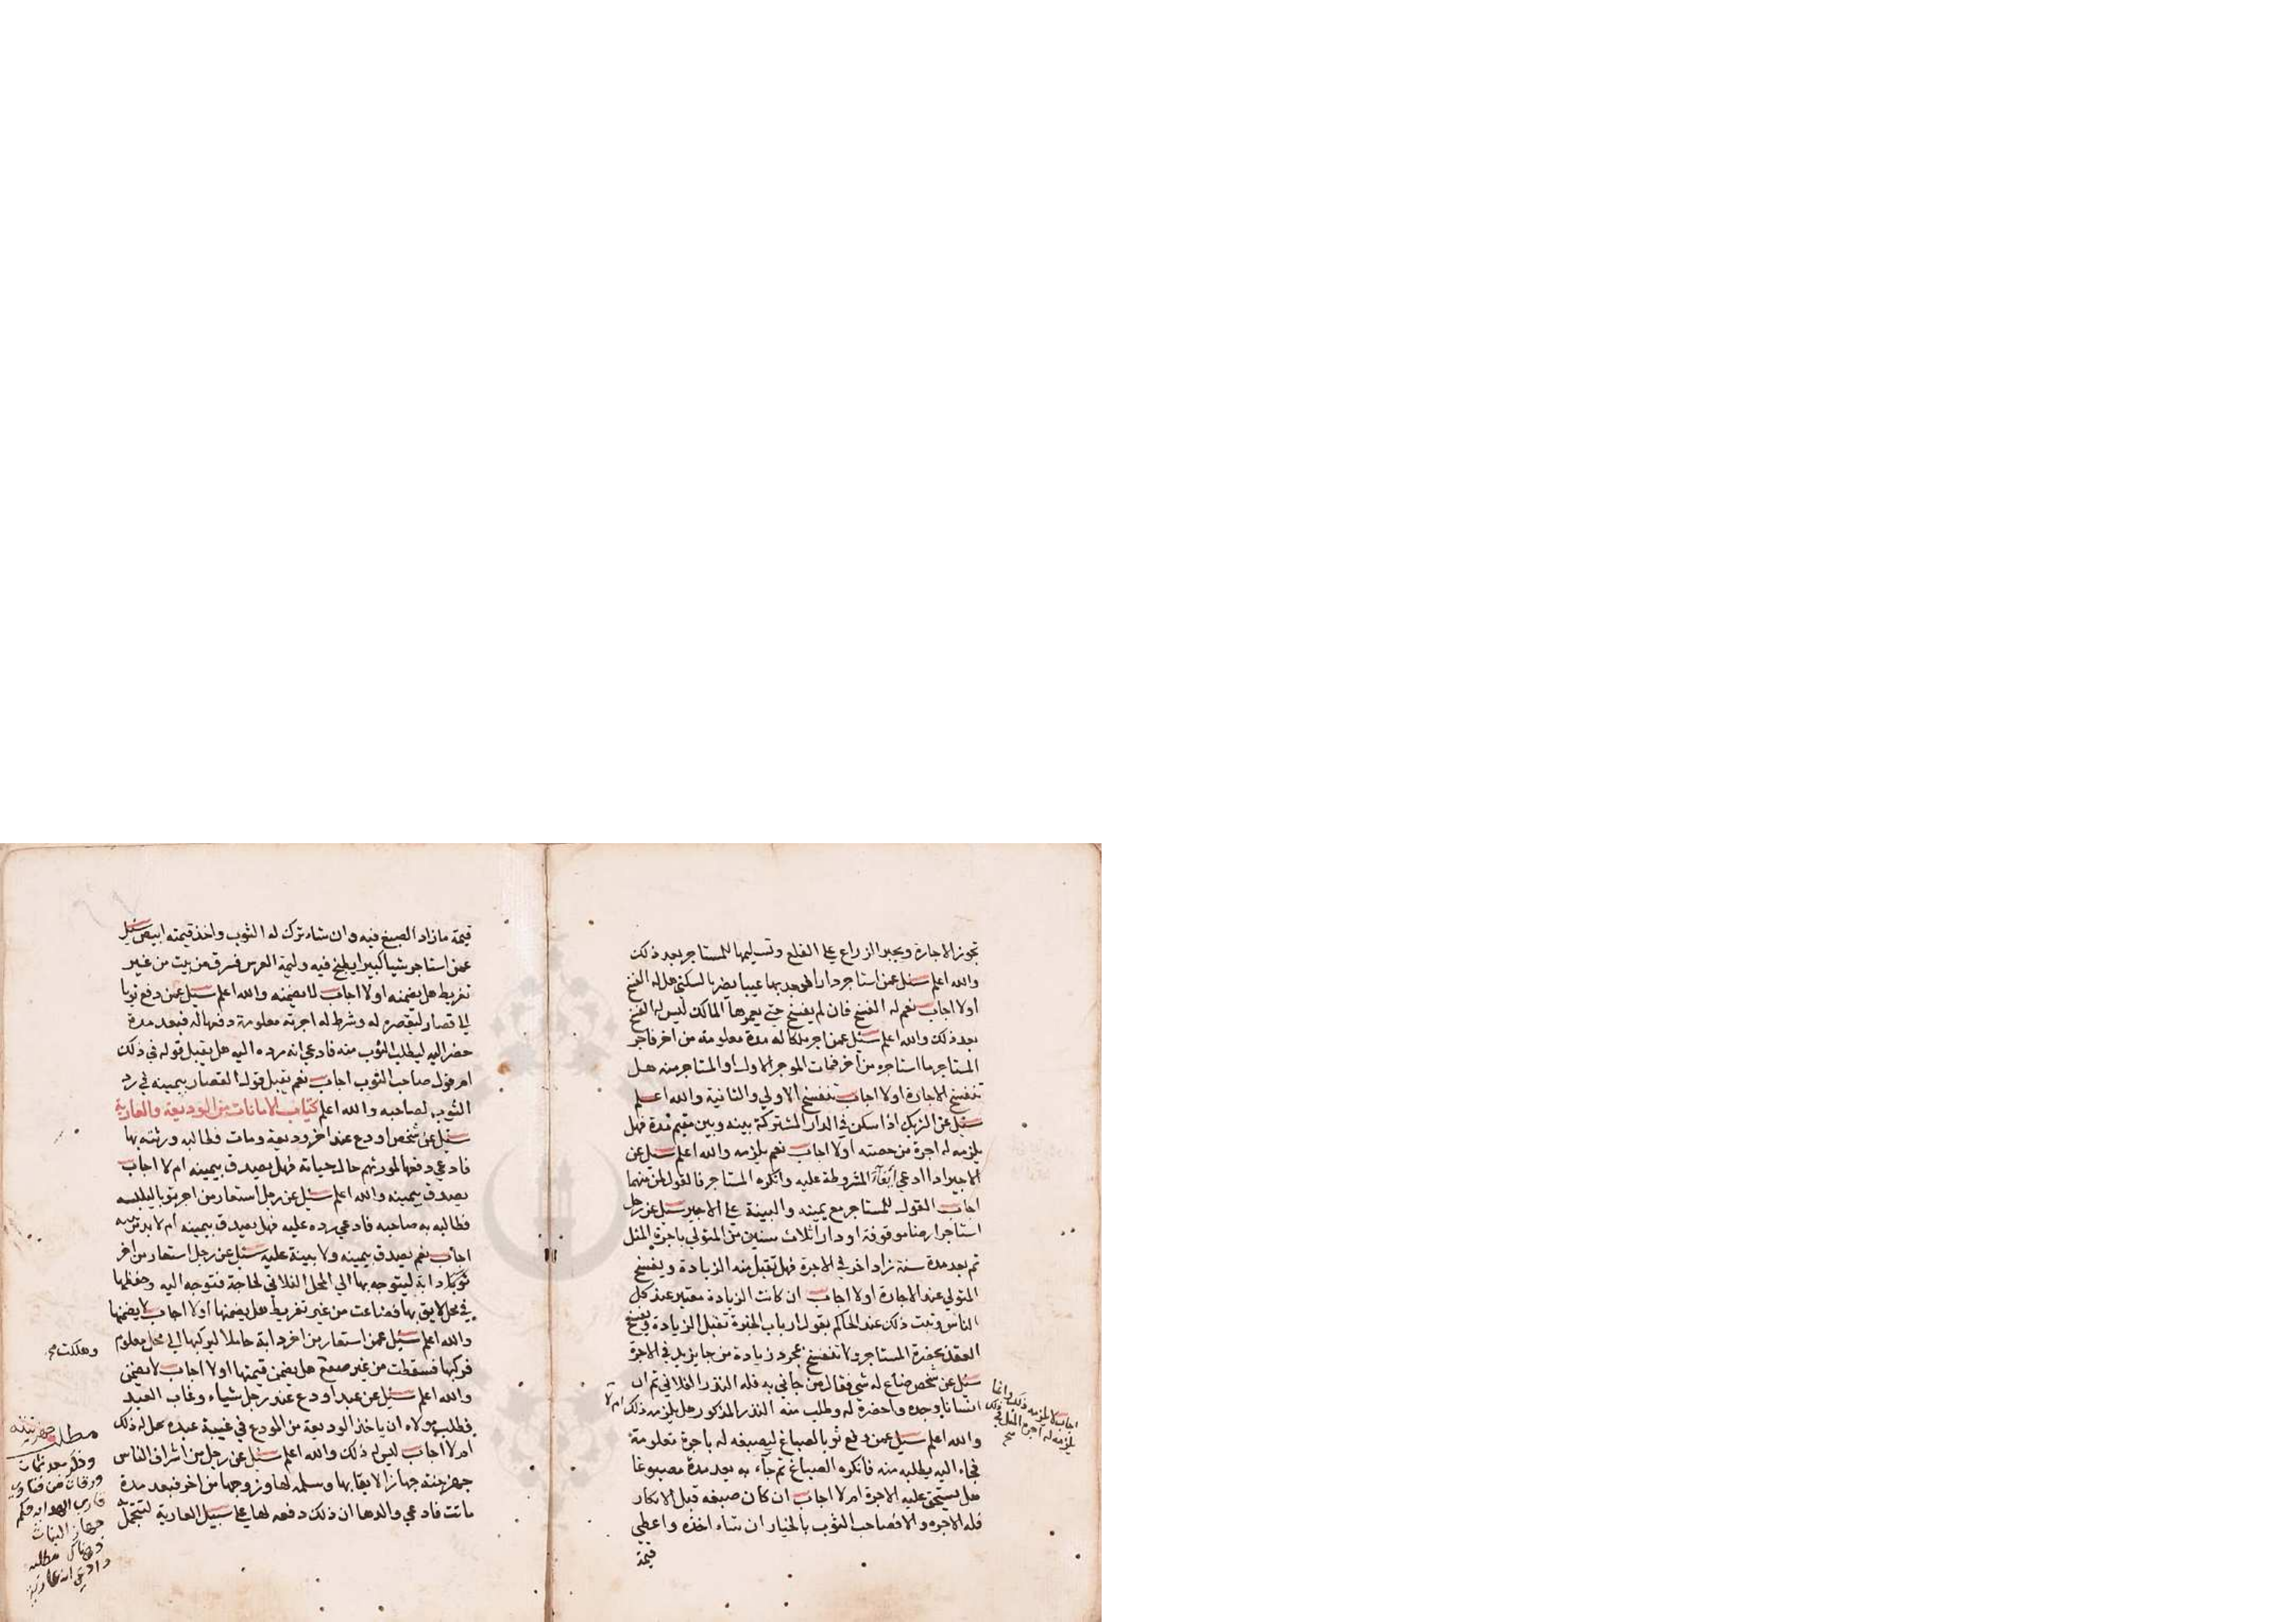 تجوز الاجارة ويجبر الزراع على القلع وتسليمها للمستاجر بعد ذلك
والله اعلم سئل عمن استاجر دارا فوجد بها عيبا يضر بالسكنى هل له الفسخ
اولا اجاب نعم له الفسخ فان لم يفسخ حتى يعمرها المالك ليس له الفسخ
بعد ذلك والله اعلم سئل عمن اجر ملكا له مدة معلومة من اخر فاجر
المستاجر ما استاجره من اخر فمات الموجر الاول او المستاجر منه هل
تنفسخ الاجارة اولا اجاب تنفسخ الاولي والثانية والله اعلم
سئل عن الشريك اذا سكن في الدار المشتركة بينه وبين يتيم مدة فهل
يلزمه له اجرة من حصته اولا اجاب نعم يلزمه والله اعلم سئل عن
الاجير اذا ادعي ايفاء المشروطة عليه وانكره المستاجر فالقول لمن منهما
اجاب القول للمستاجر مع يمينه والبينة على الاجير سئل عن رجل
استاجر ارضا موقوفة او دارا ثلاث سنين من المتولي باجرة المثل
ثم بعد مدة سنة زاد اخر في الاجرة فهل تقبل منه الزيادة ويفسخ
المتولي عقد الاجارة اولا اجاب ان كانت الزيادة معتبر عند كل
الناس وثبت ذلك عند الحاكم بقول ارباب الخبرة تقبل الزيادة ويفسخ
العقد بحضرة المستاجر ولا تنفسخ بمجرد زيادة من جا يزيد في الاجرة
سئل عن شخص ضاع له شي فقال من جاني به فله النذر الفلاني ثم ان
انسانا وجده واحضره له وطلب منه النذر المذكور هل يلزمه ذلك ام لا
اجاب لا يلزمه ذلك وانما
يلزمه له اجرة المثل في ذلك
صح
والله اعلم سئل عمن دفع ثوبا لصباغ ليصبغه له باجرة معلومة
فجاء اليه يطلبه منه فانكره الصباغ ثم جآء به بعد مدة مصبوغا
هل يستحق عليه الاجرة ام لا اجاب ان كان صبغه قبل الانكار
فله الاجره والا فصاحب الثوب بالخيار ان شاء اخذه واعطي
قيمة
قيمة ما زاد الصبغ فيه وان شاء ترك له الثوب واخذ قيمته ابيض سئل
عمن استاجر شيا كبيرا يطبخ فيه وليمة العرس فسرق من بيت من غير
تفريط هل يضمنه اولا اجاب لا يضمنه والله اعلم سئل عمن دفع ثوبا
الى قصار ليقصره له وشرط له اجرته معلومة دفعها له فبعد مدة
حضر اليه ليطلب الثوب منه فادعي انه رده اليه هل يقبل قوله في ذلك
ام قول صاحب الثوب اجاب نعم يقبل قول القصار بيمينه في رد
الثوب لصاحبه والله اعلم كتاب الامانات من الوديعة والعارية
سئل عن شخص اودع عند اخر وديعة ومات فطالبه ورثته بها
فادعي دفعها لمورثهم حال حياته فهل يصدق بيمينه ام لا اجاب
يصدق بيمينه والله اعلم سئل عن رجل استعار من اخر ثوبا ليلبسه
فطالبه به صاحبه فادعي رده عليه فهل يصدق بيمينه ام لا بد من بينه
اجاب نعم يصدق بيمينه ولا بينة عليه سئل عن رجل استعار من اخر
ثوبا او دابة ليتوجه بها الي المحل الفلاني لحاجة فتوجه اليه وحفظها
في محل لايق بها فضاعت من غير تفريط هل يضمنها اولا اجاب لا يضمنها
والله اعلم سئل عمن استعار من اخر دابة حاملا ليركبها الي محل معلوم
فركبها فسقطت من غير صنعه هل يضمن قيمتها اولا اجاب لا يضمن
وهلكت صح
والله اعلم سئل عن عبد اودع عند رجل شياء وغاب العبد
فطلب مولاه ان ياخذ الوديعة من المودع في غيبة عبده هل له ذلك
ام لا اجاب ليس له ذلك والله اعلم سئل عن رجل من اشراف الناس
جهز بنته جهازا لايقا بها وسلمه لها وزوجها من اخر فبعد مدة
ماتت فادعي والدها ان ذلك دفعه لها على سبيل العارية لتتجمل
مطلب جهز بنته
وذكر بعد ثمان
ورقات من فتاوى
قارى الهداية حكم
جهاز البنات
وهناك مطلبه
وادعى انه عارية